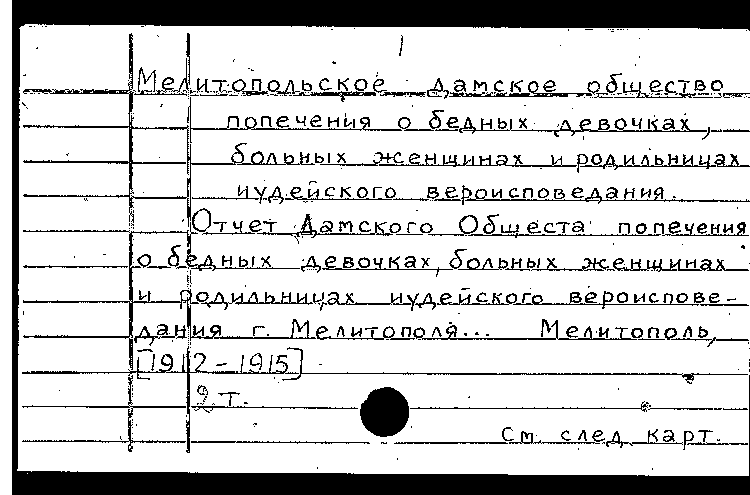 Мелитопольское дамское общество
попечения о бедных девочках,
больных женщинах и родильницах
иудейского вероисповедания.
Отчет Дамского Общеста попечения
о бедных девочках, больных женщинах
и родильницах иудейского вероиспове-
дания г. Мелитополя... Мелитополь,
[1912-1915]
2 т.
См. след. карт.